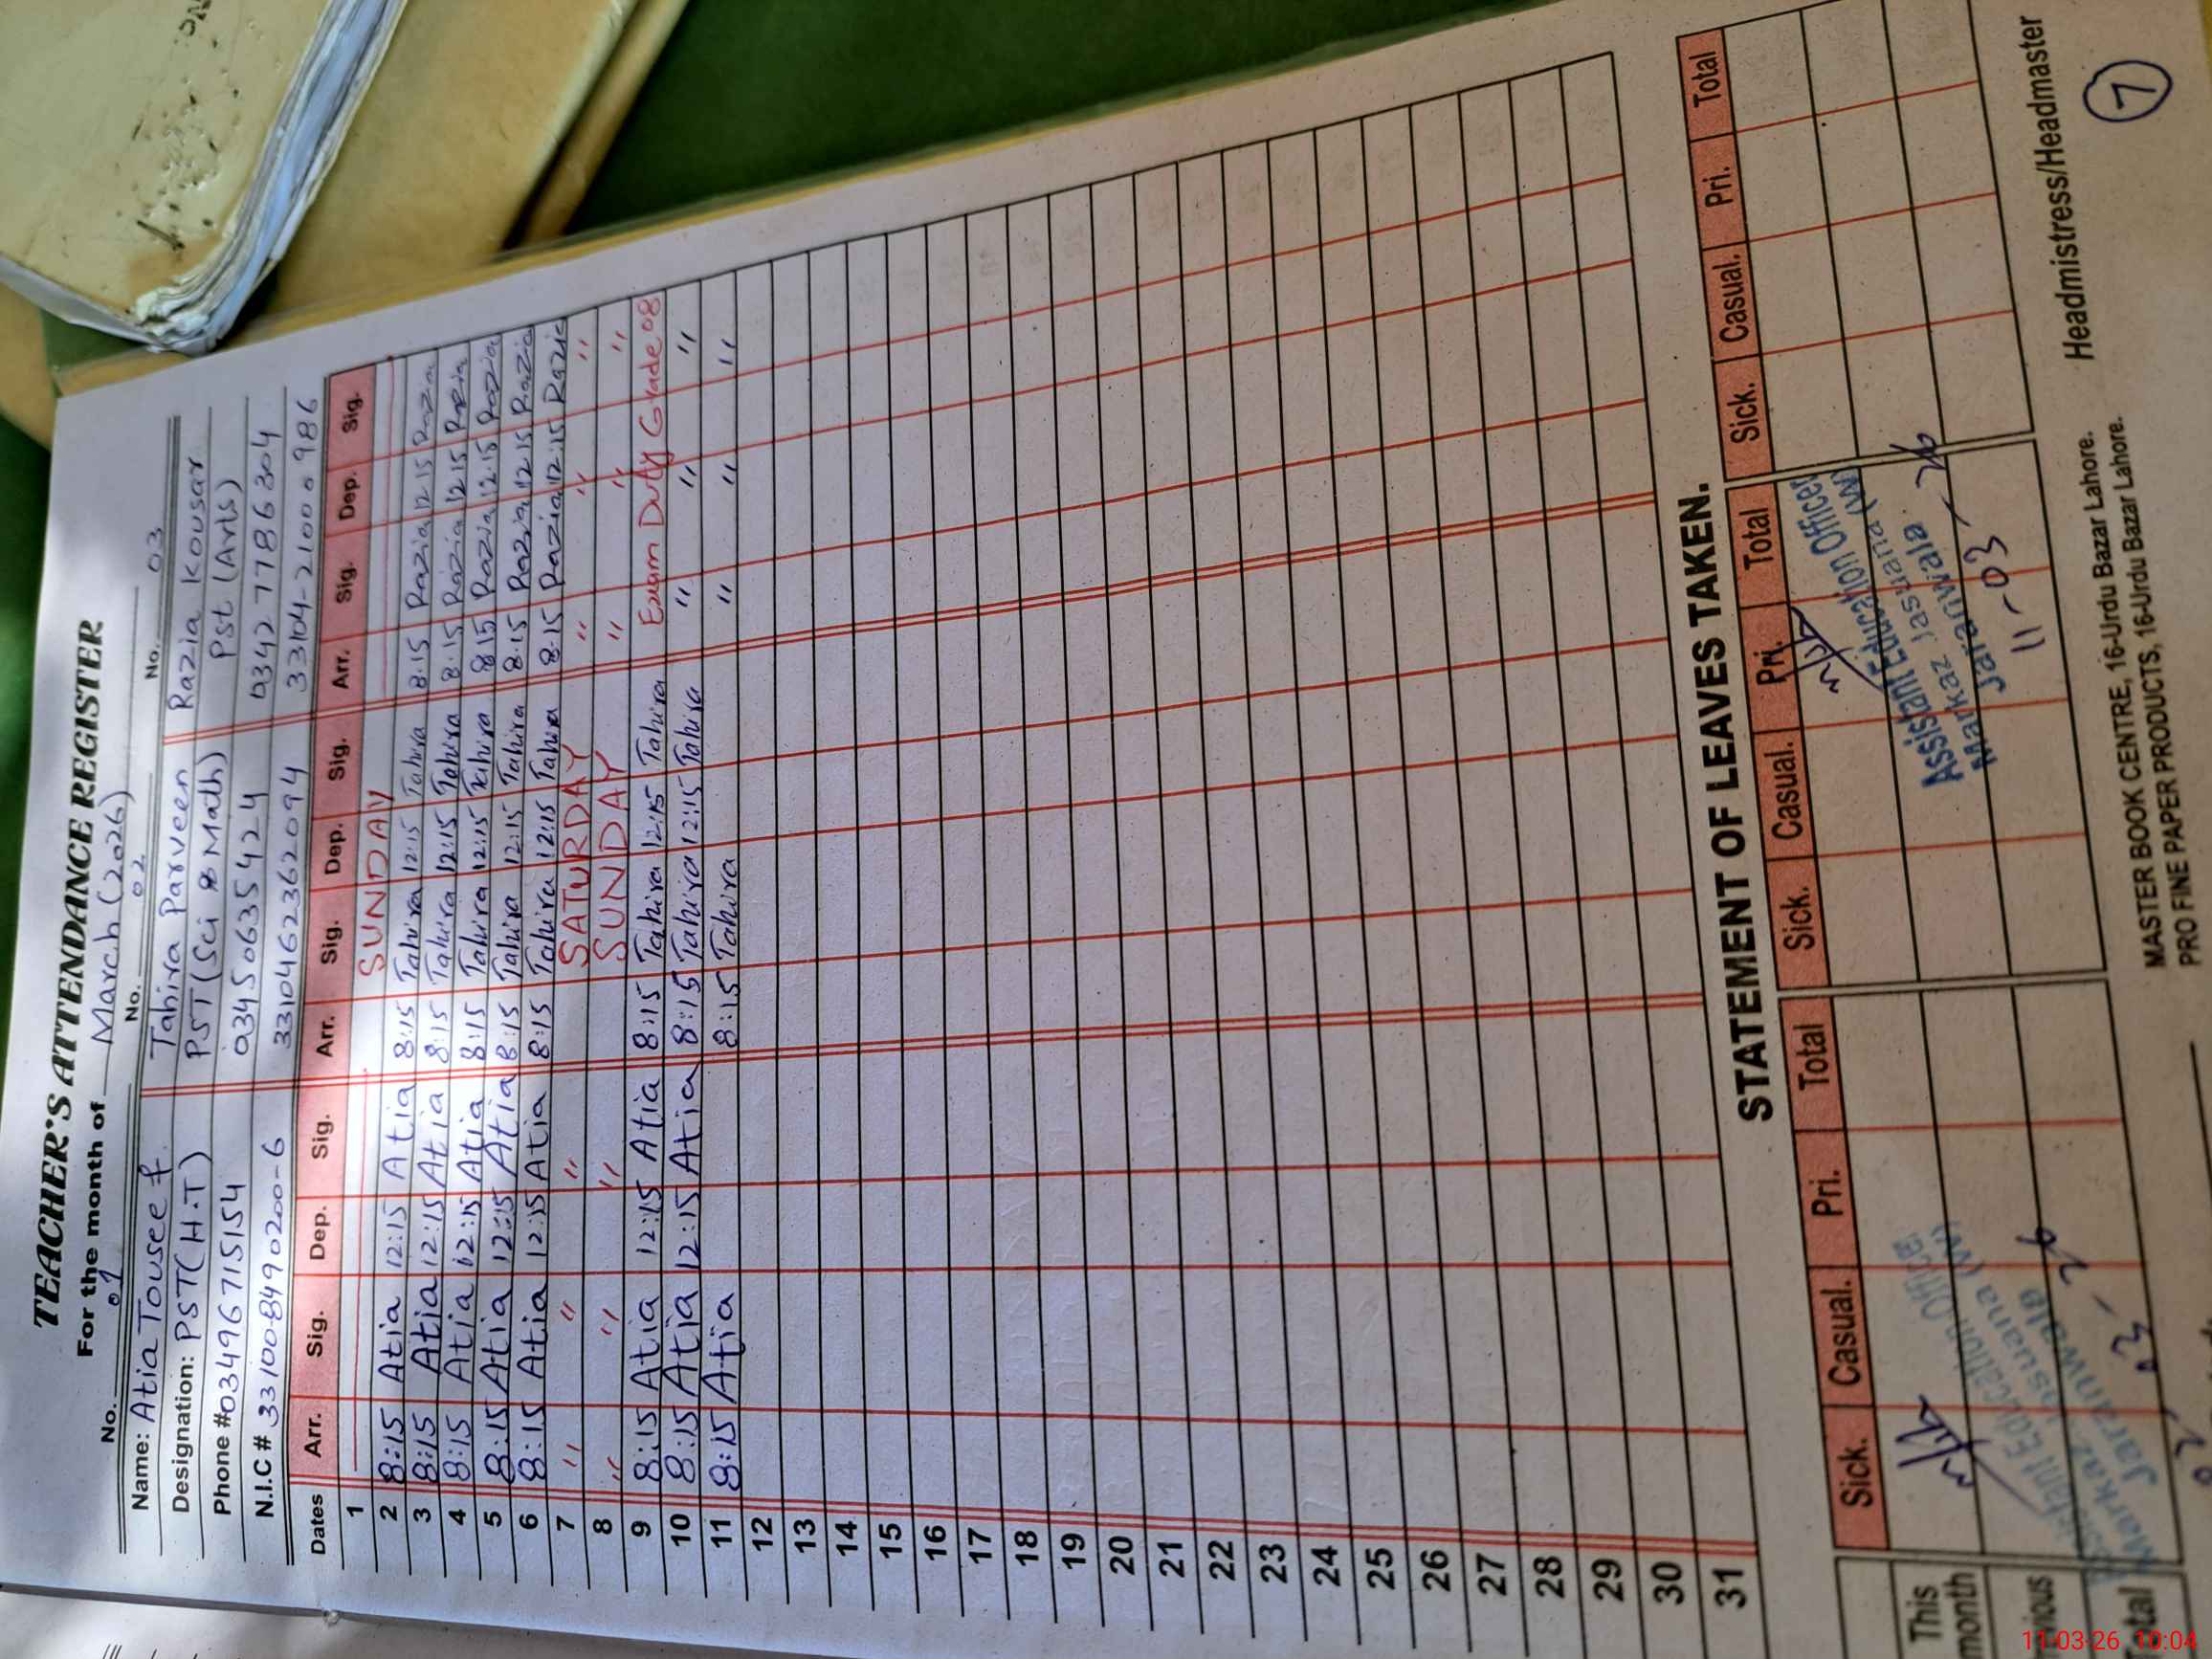 TEACHER'S ATTENDANCE REGISTER
For the month of March (2026)
No. 01 No. 02 No. 03
Name: Atia Tousee f. Tahira Parveen Razia Kousar
Designation: PST(H.T) PST (Sci & Math) Pst (Arts)
Phone #03496715154 03450635424 03427786304
N.I.C # 33100-8490200-6 3310462362094 33104-2100 0986
Dates Arr. Sig. Dep. Sig. Arr. Sig. Dep. Sig. Arr. Sig. Dep. Sig.
1 SUNDAY
2 8:15 Atia 12:15 Atia 8:15 Tahira 12:15 Tahira 8:15 Razia 12 15 Razia
3 8:15 Atia 12:15 Atia 8:15 Tahira 12:15 Tahira 8:15 Razia 12 15 Razia
4 8:15 Atia 12:15 Atia 8:15 Tahira 12:15 Tahira 8 15 Razia 12 15 Razia
5 8:15 Atia 12:15 Atia 8:15 Tahira 12:15 Tahira 8:15 Razia 12 15 Razia
6 8:15 Atia 12:15 Atia 8:15 Tahira 12:15 Tahira 8:15 Razia 12:15 Razia
7 " " " SATURDAY " " "
8 " " " SUNDAY " " "
9 8:15 Atia 12:15 Atia 8:15 Tahira 12:15 Tahira Exam Duty Grade 08
10 8:15 Atia 12:15 Atia 8:15 Tahira 12:15 Tahira " " "
11 8:15 Atia 8:15 Tahira " " "
12
13
14
15
16
17
18
19
20
21
22
23
24
25
26
27
28
29
30
31
STATEMENT OF LEAVES TAKEN.
Sick. Casual. Pri. Total Sick. Casual. Pri. Total Sick. Casual. Pri. Total
This month
Assistant Education Officer
Markaz Jasuana (W)
Jaranwala
03-26
Assistant Education Officer
Markaz Jasuana (W)
Jaranwala
11-03-26
Headmistress/Headmaster
MASTER BOOK CENTRE, 16-Urdu Bazar Lahore.
PRO FINE PAPER PRODUCTS, 16-Urdu Bazar Lahore.
7
11-03-26 10:04